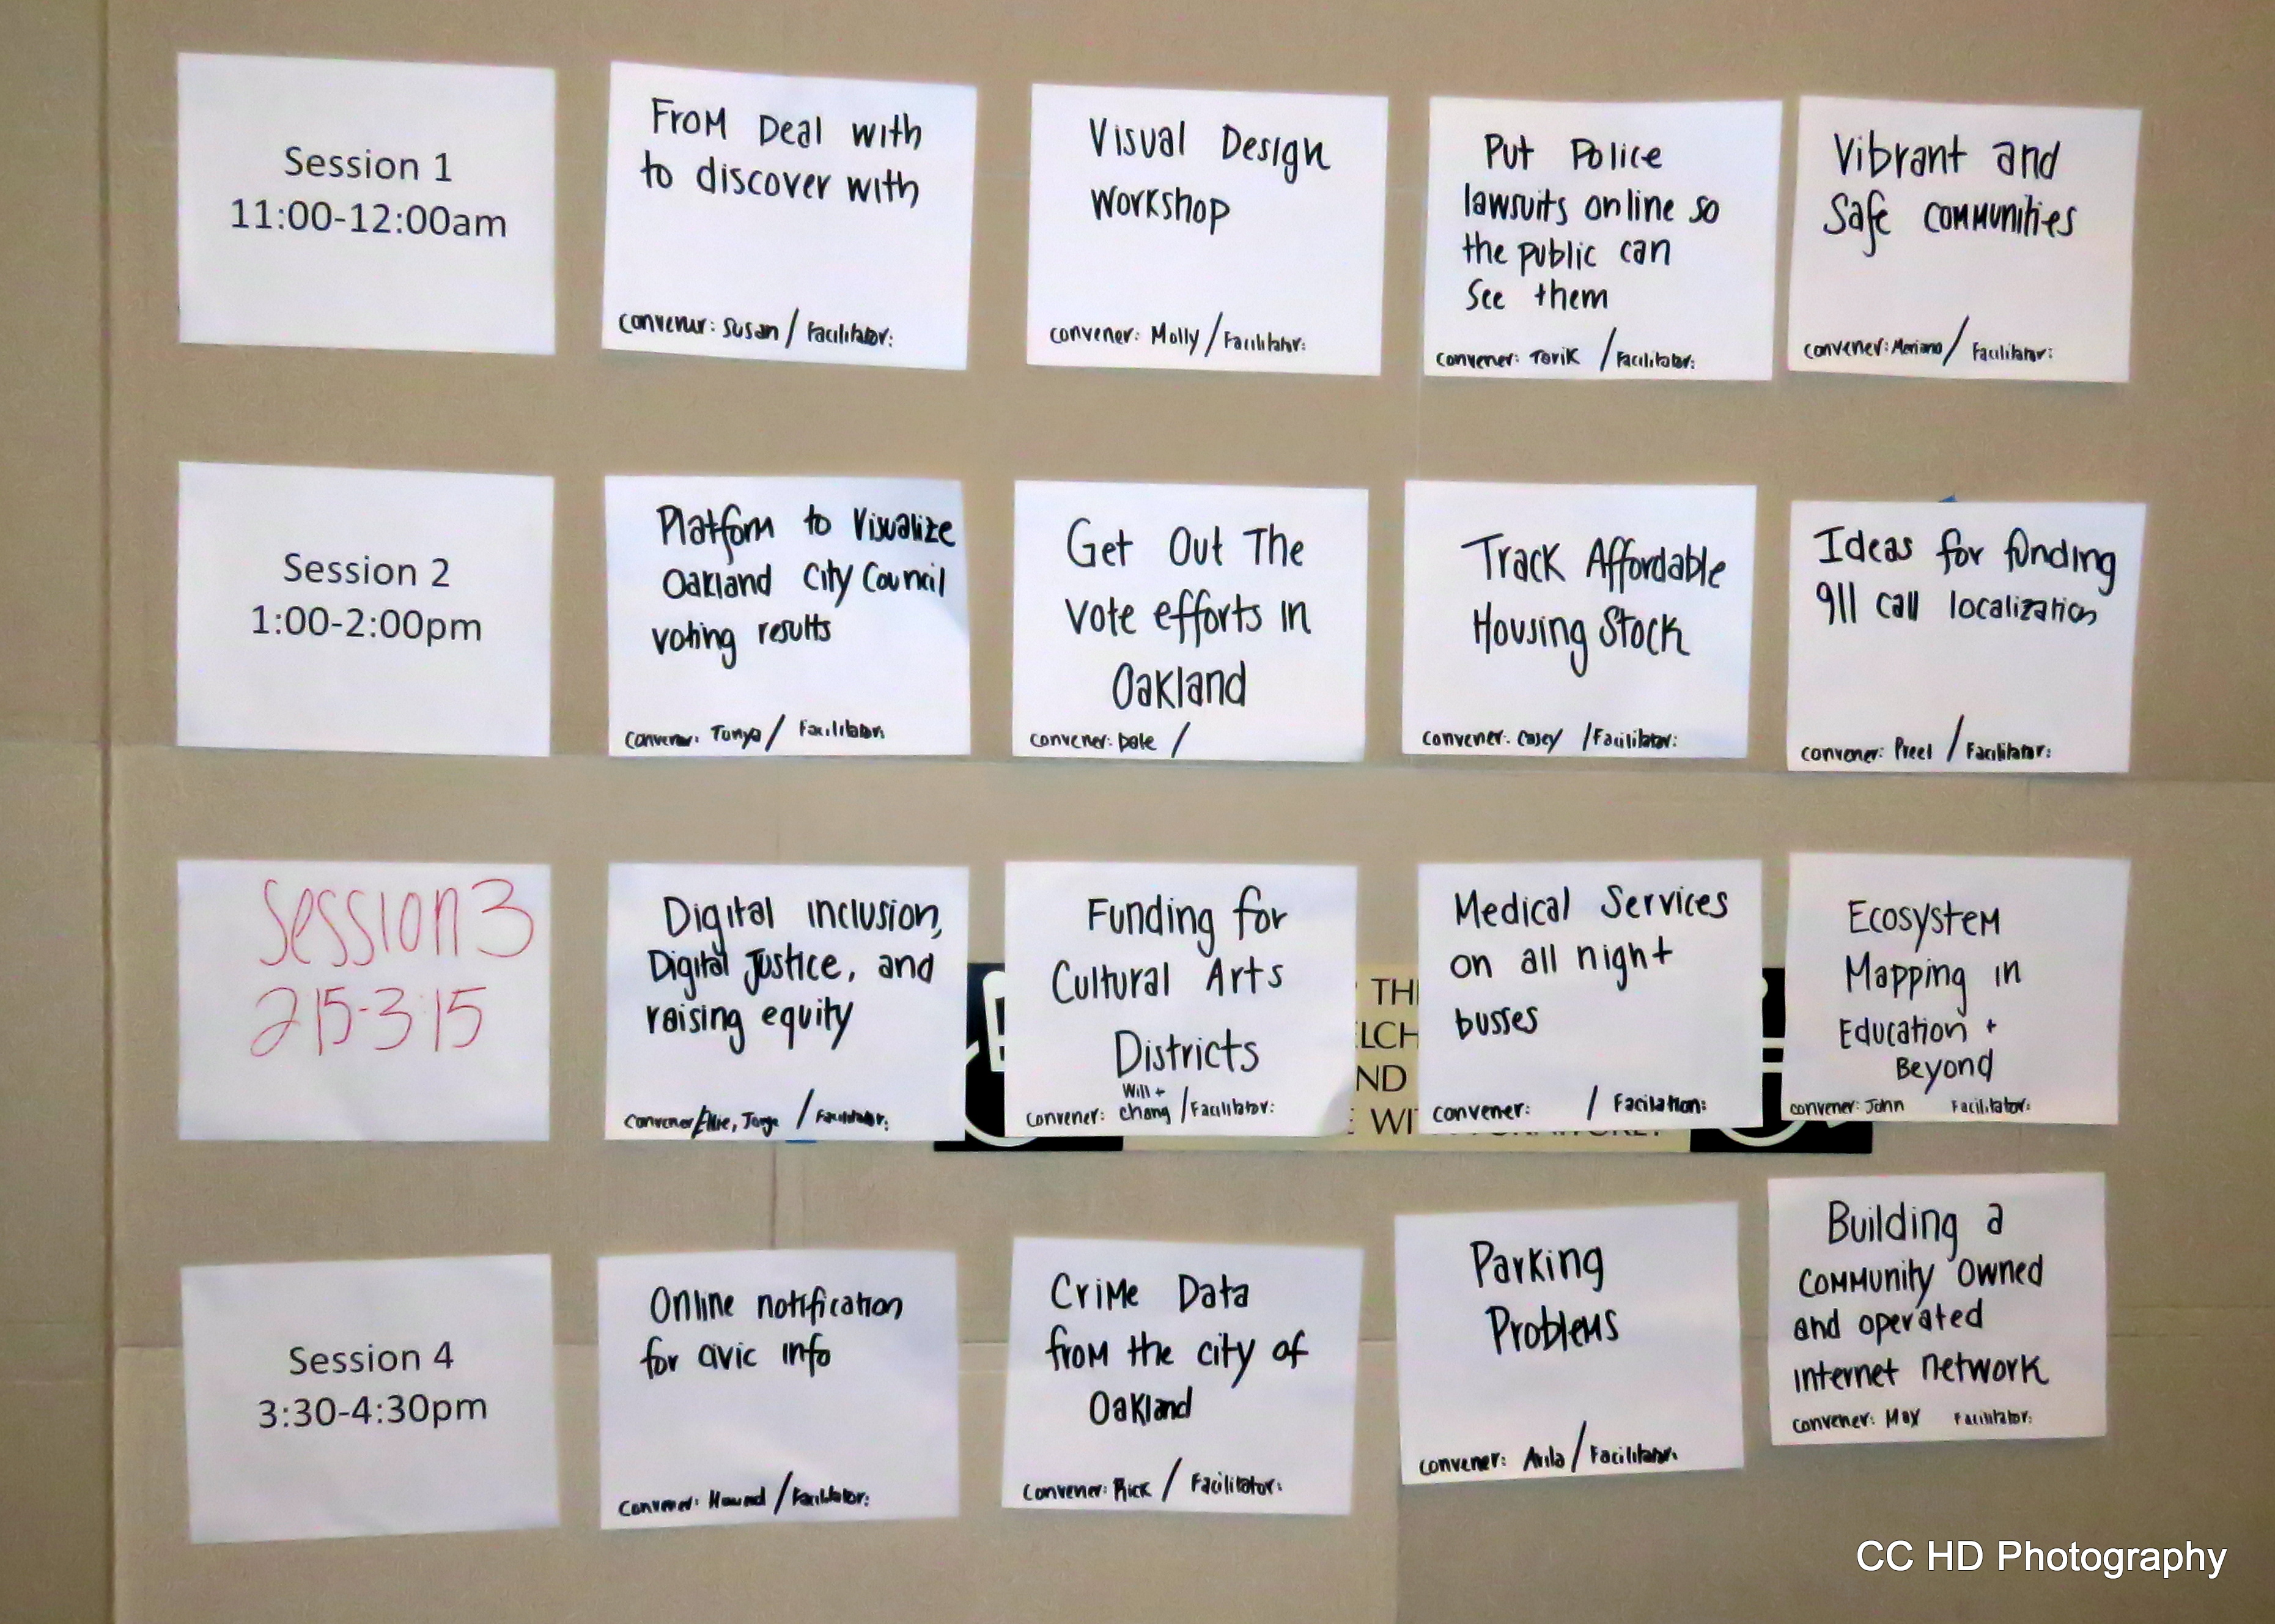 Session 1
11:00-12:00am
From Deal with
to discover with
convener: Susan / Facilitator:
Visual Design
Workshop
convener: Molly / Facilitator:
Put Police
lawsuits online so
the public can
See them
convener: Torik / Facilitator:
Vibrant and
Safe communities
convener: Mariano / Facilitator:
Session 2
1:00-2:00pm
Platform to Visualize
Oakland City Council
voting results
convener: Tunya / Facilitator:
Get Out The
vote efforts in
Oakland
convener: Dale /
Track Affordable
Housing Stock
convener: Casey / Facilitator:
Ideas for funding
911 call localization
convener: / Facilitator:
Session 3
215-3:15
Digital inclusion,
Digital Justice, and
raising equity
Convener / Ellie, Jorge / Facilitator:
Funding for
Cultural Arts
Districts
Will +
convener: Chang / Facilitator:
Medical Services
on all night
busses
convener: / Facilation:
Ecosystem
Mapping in
Education +
Beyond
convener: John Facilitator:
TH
LCH
ND
E WI
Session 4
3:30-4:30pm
Online notification
for civic info
Convener: Howard / Facilitator:
Crime Data
from the city of
Oakland
Convener: Rick / Facilitator:
Parking
Problems
convener: / Facilitator:
Building a
community owned
and operated
internet network
convener: Max Facilitator:
CC HD Photography